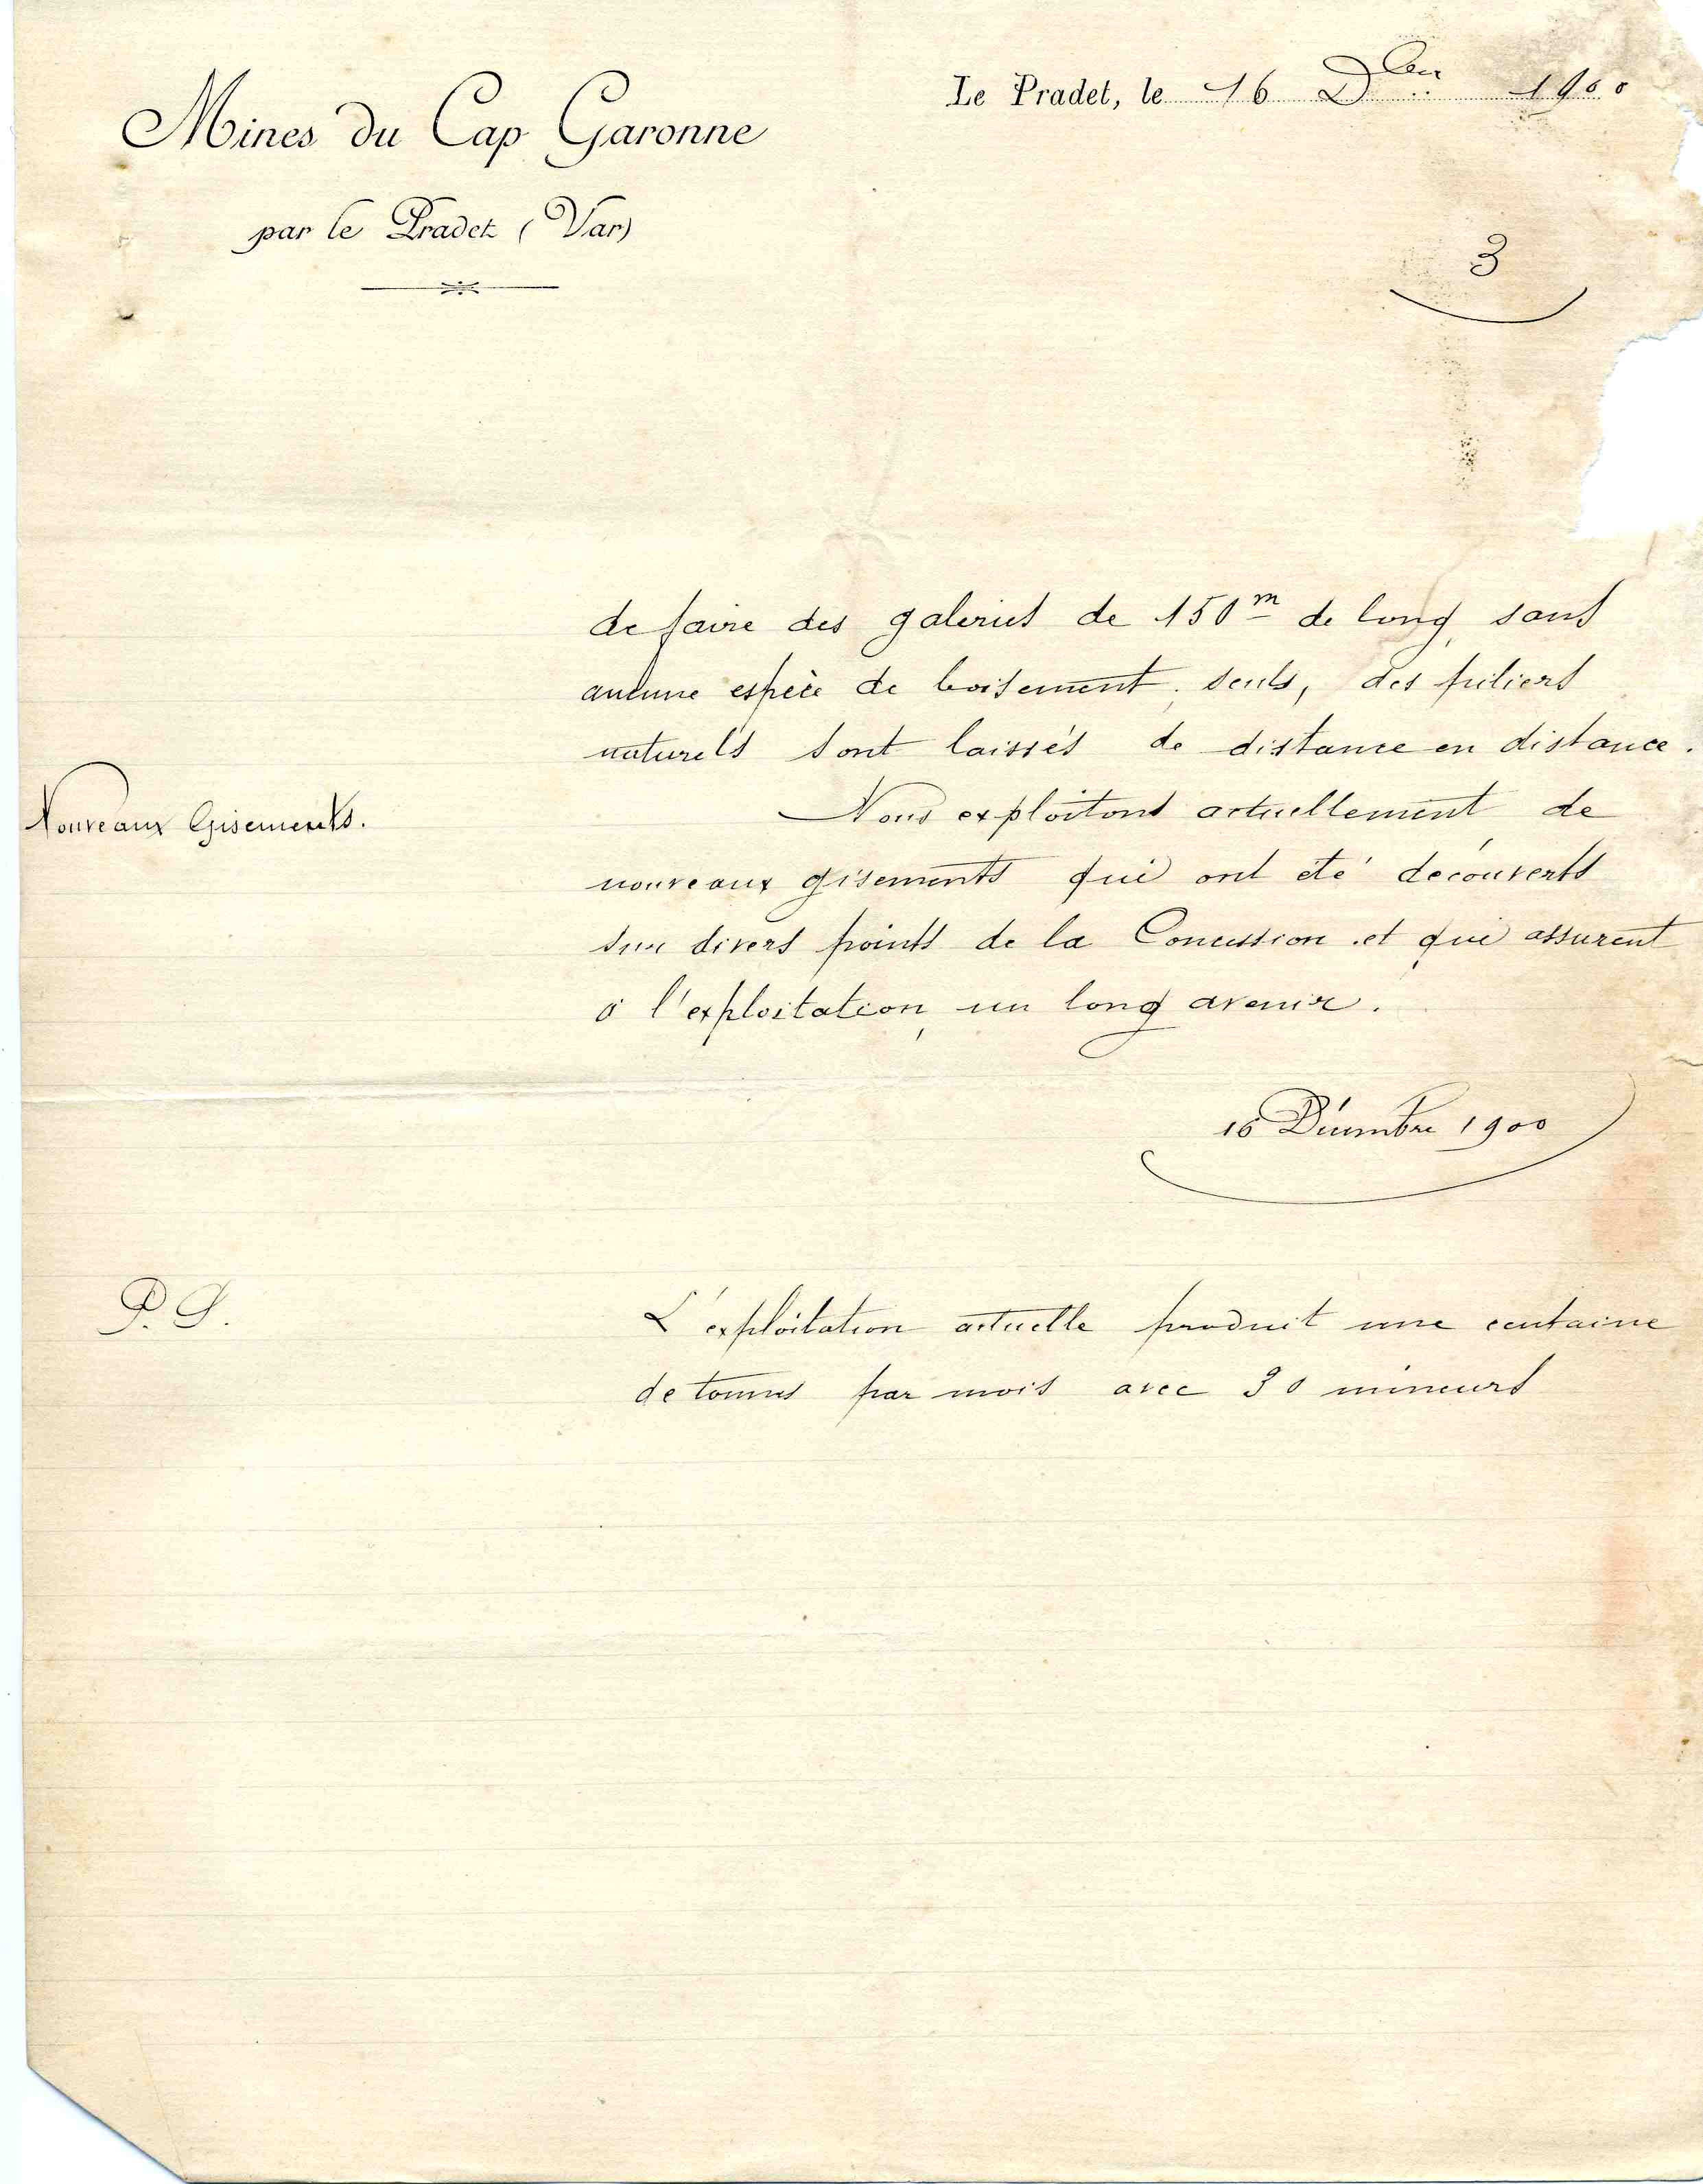 Mines du Cap Garonne
par le Pradet (Var)
Le Pradet, le 16 Dbre 1900
3
de faire des galeries de 150m de long sans
aucune espèce de boisement, seuls, des piliers
naturels sont laissés de distance en distance.
Nouveaux Gisements.
Nous exploitons actuellement de
nouveaux gisements qui ont été découverts
sur divers points de la Concession et qui assurent
à l'exploitation, un long avenir.
16 Décembre 1900
P.S.
L'exploitation actuelle produit une centaine
de tonnes par mois avec 30 mineurs